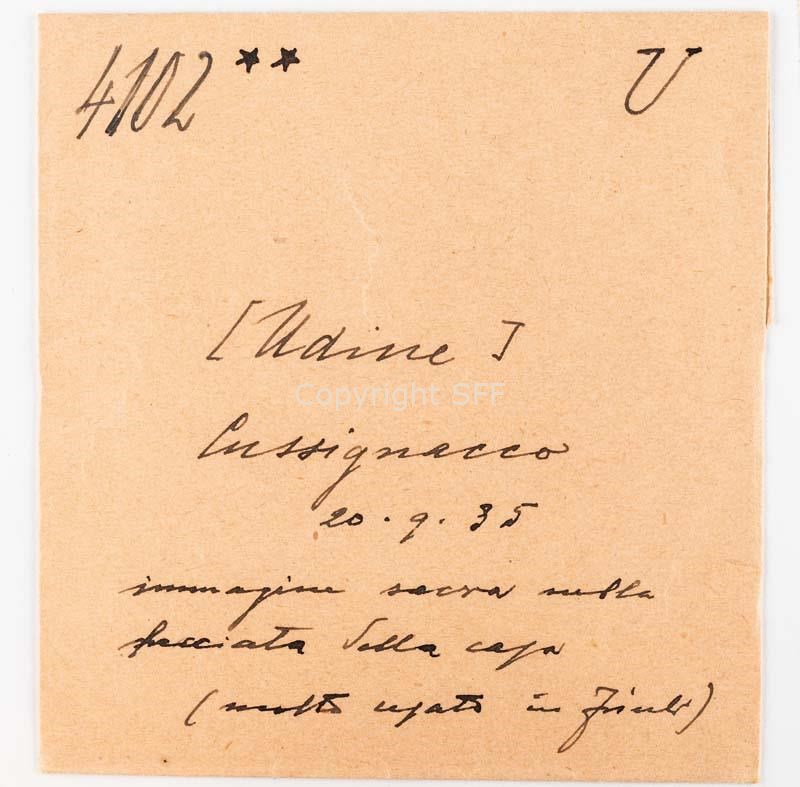 4102 ** U
[Udine]
Copyright SFF
Cussignacco
20.9.35
immagine sacra nella
facciata della casa
(molto usato in Friuli)